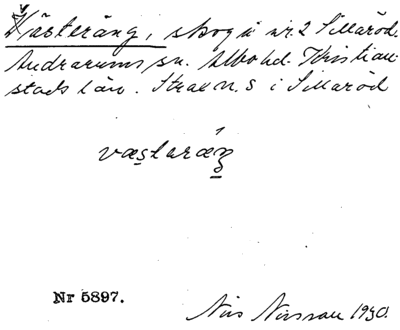 Västeräng, skog å nr 2 Sillaröd.
Andrarums sn. Albo hd. Kristian-
stads län. Strax n. S i Sillaröd
Nr 5897.
Nils Nilsson 1930.